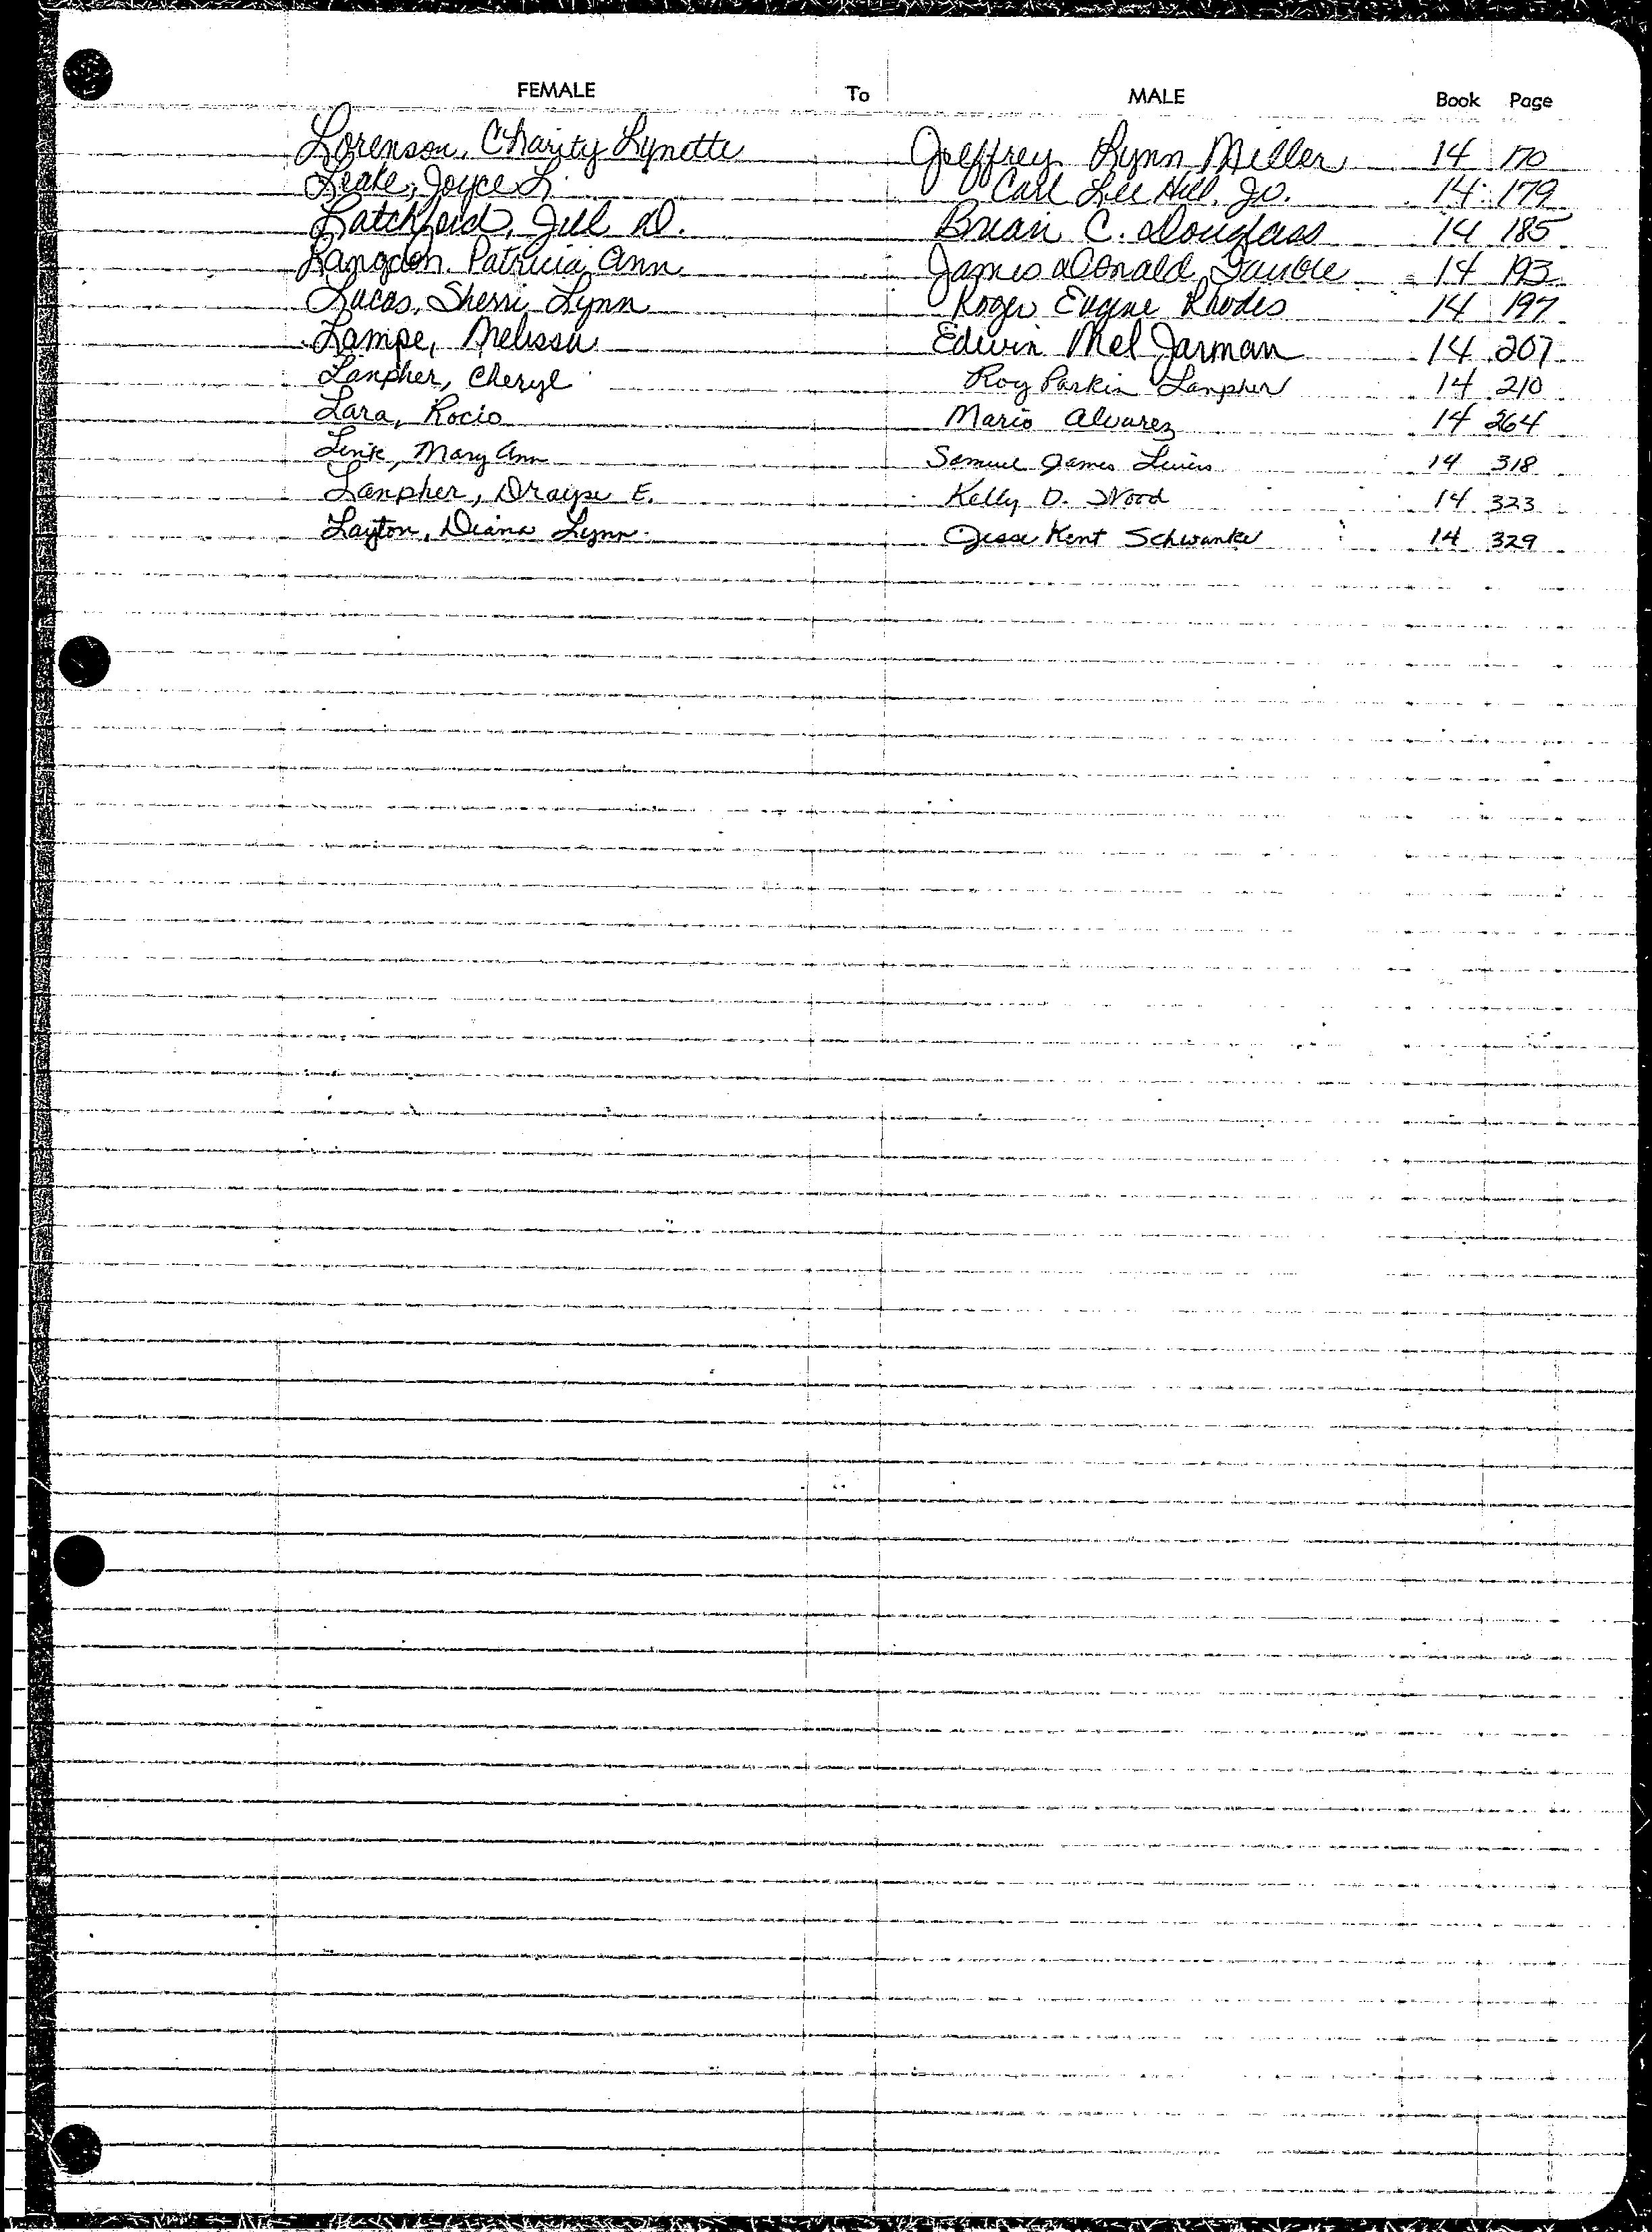 FEMALE To MALE Book Page
Lorenson, Charity Lynette Jeffrey Lynn Miller 14 170
Leake, Joyce L. Carl Lee Hill, Jr. 14 179
Latchford, Jill D. Brian C. Douglass 14 185
Langdon, Patricia Ann James Donald 14 193
Lucas, Sherri Lynn Roger Eugene Rhodes 14 197
Lampe, Melissa Edwin Mel Jarman 14 207
Lanpher, Cheryl Roy Parkin Lanpher 14 210
Lara, Rocio Mario Alvarez 14 264
Link, Mary Ann Samuel James 14 318
Lanpher, E. Kelly D. Wood 14 323
Layton, Diana Lynn Jesse Kent Schwanke 14 329